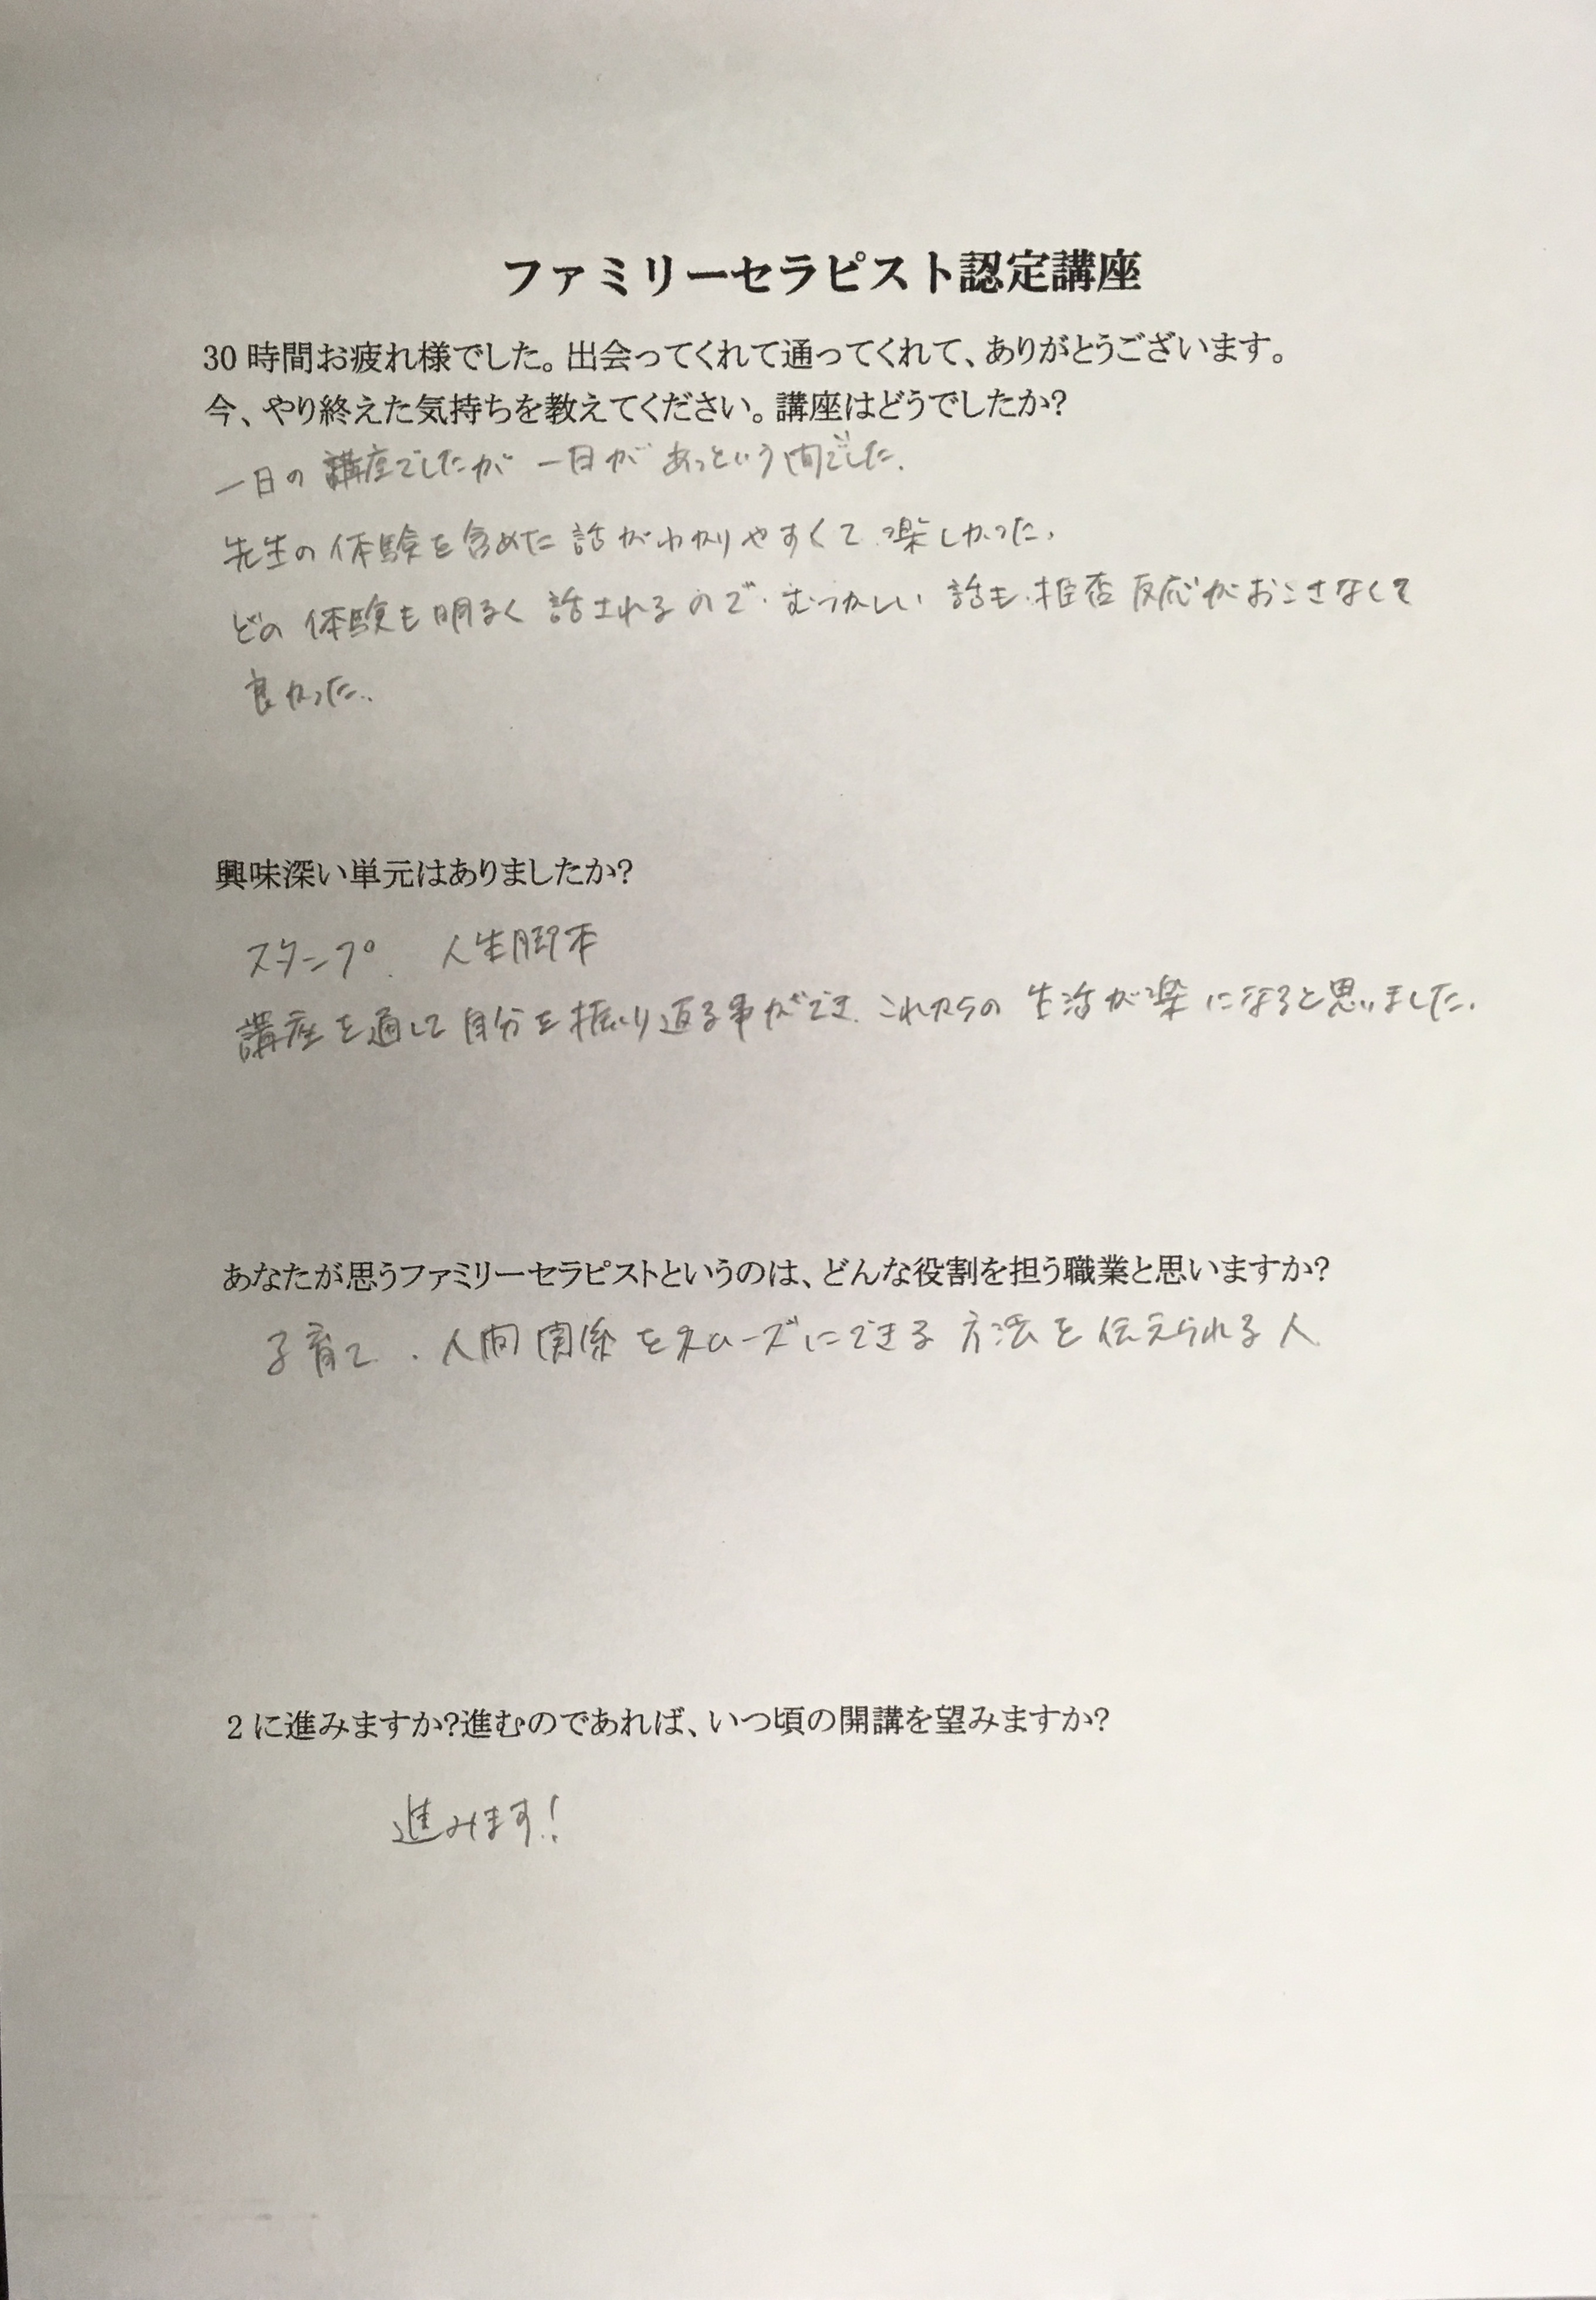 ファミリーセラピスト認定講座
30時間お疲れ様でした。出会ってくれて通ってくれて、ありがとうございます。
今、やり終えた気持ちを教えてください。講座はどうでしたか?
一日の講座でしたが 一日が あっという間でした.
先生の体験を含めた話がわかりやすくて 楽しかった.
どの体験も明るく話されるので、むつかしい話も、拒否反応がおこさなくて
良かった.
興味深い単元はありましたか?
スタンプ. 人生脚本
講座を通して自分を振り返る事ができ これからの生活が楽になると思いました.
あなたが思うファミリーセラピストというのは、どんな役割を担う職業と思いますか?
子育て.人間関係をスムーズにできる方法を伝えられる人
2に進みますか?進むのであれば、いつ頃の開講を望みますか?
進みます!